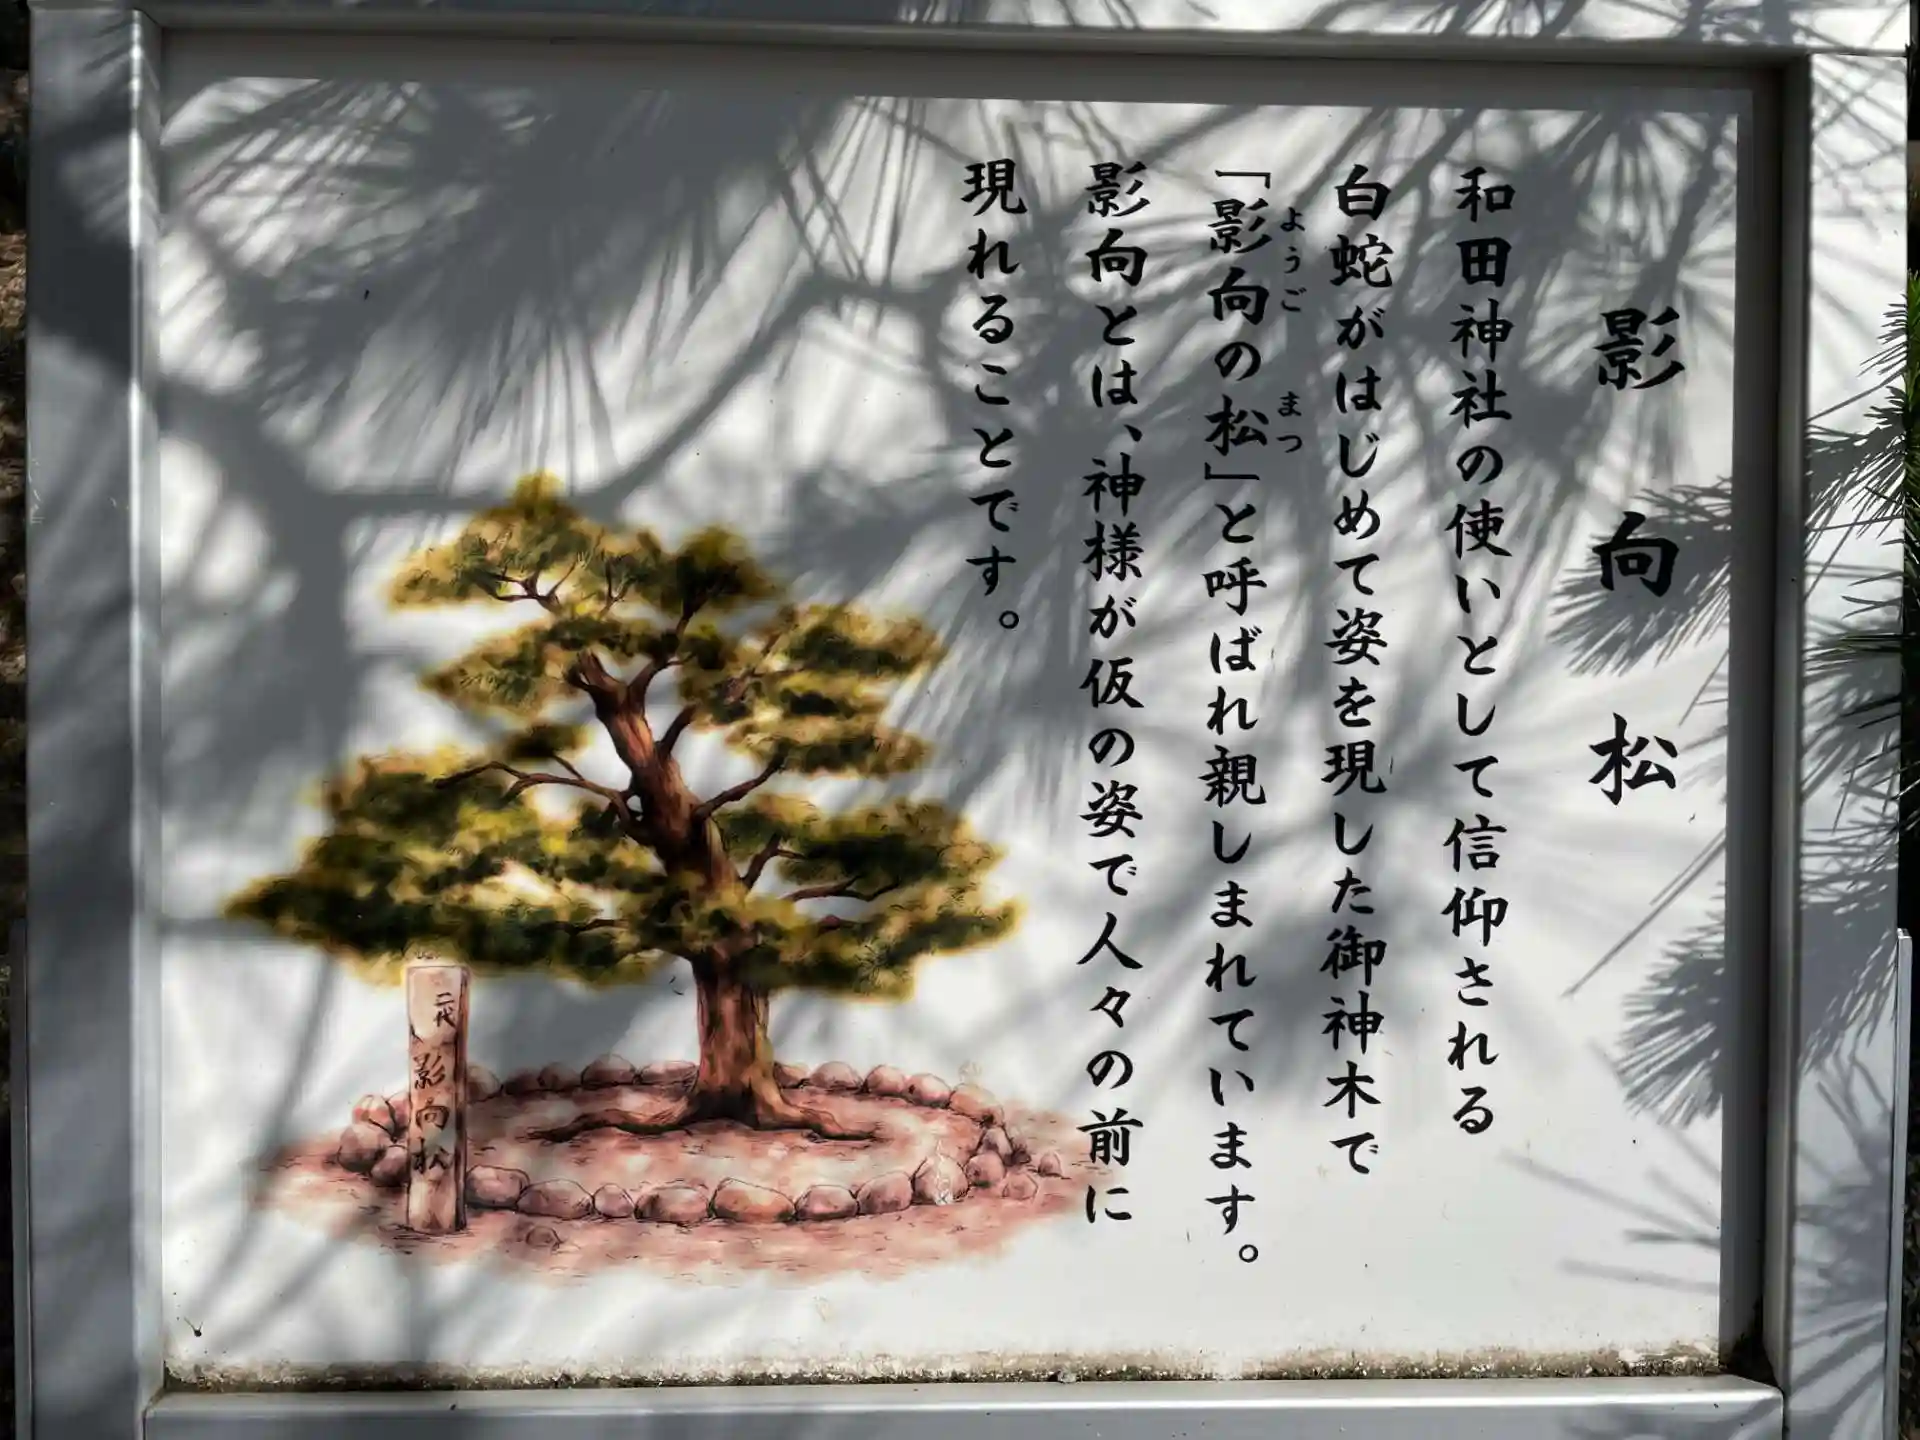 影向松
和田神社の使いとして信仰される
白蛇がはじめて姿を現した御神木で
「影向の松」と呼ばれ親しまれています。
ようご まつ
影向とは、神様が仮の姿で人々の前に
現れることです。
二代
影向松